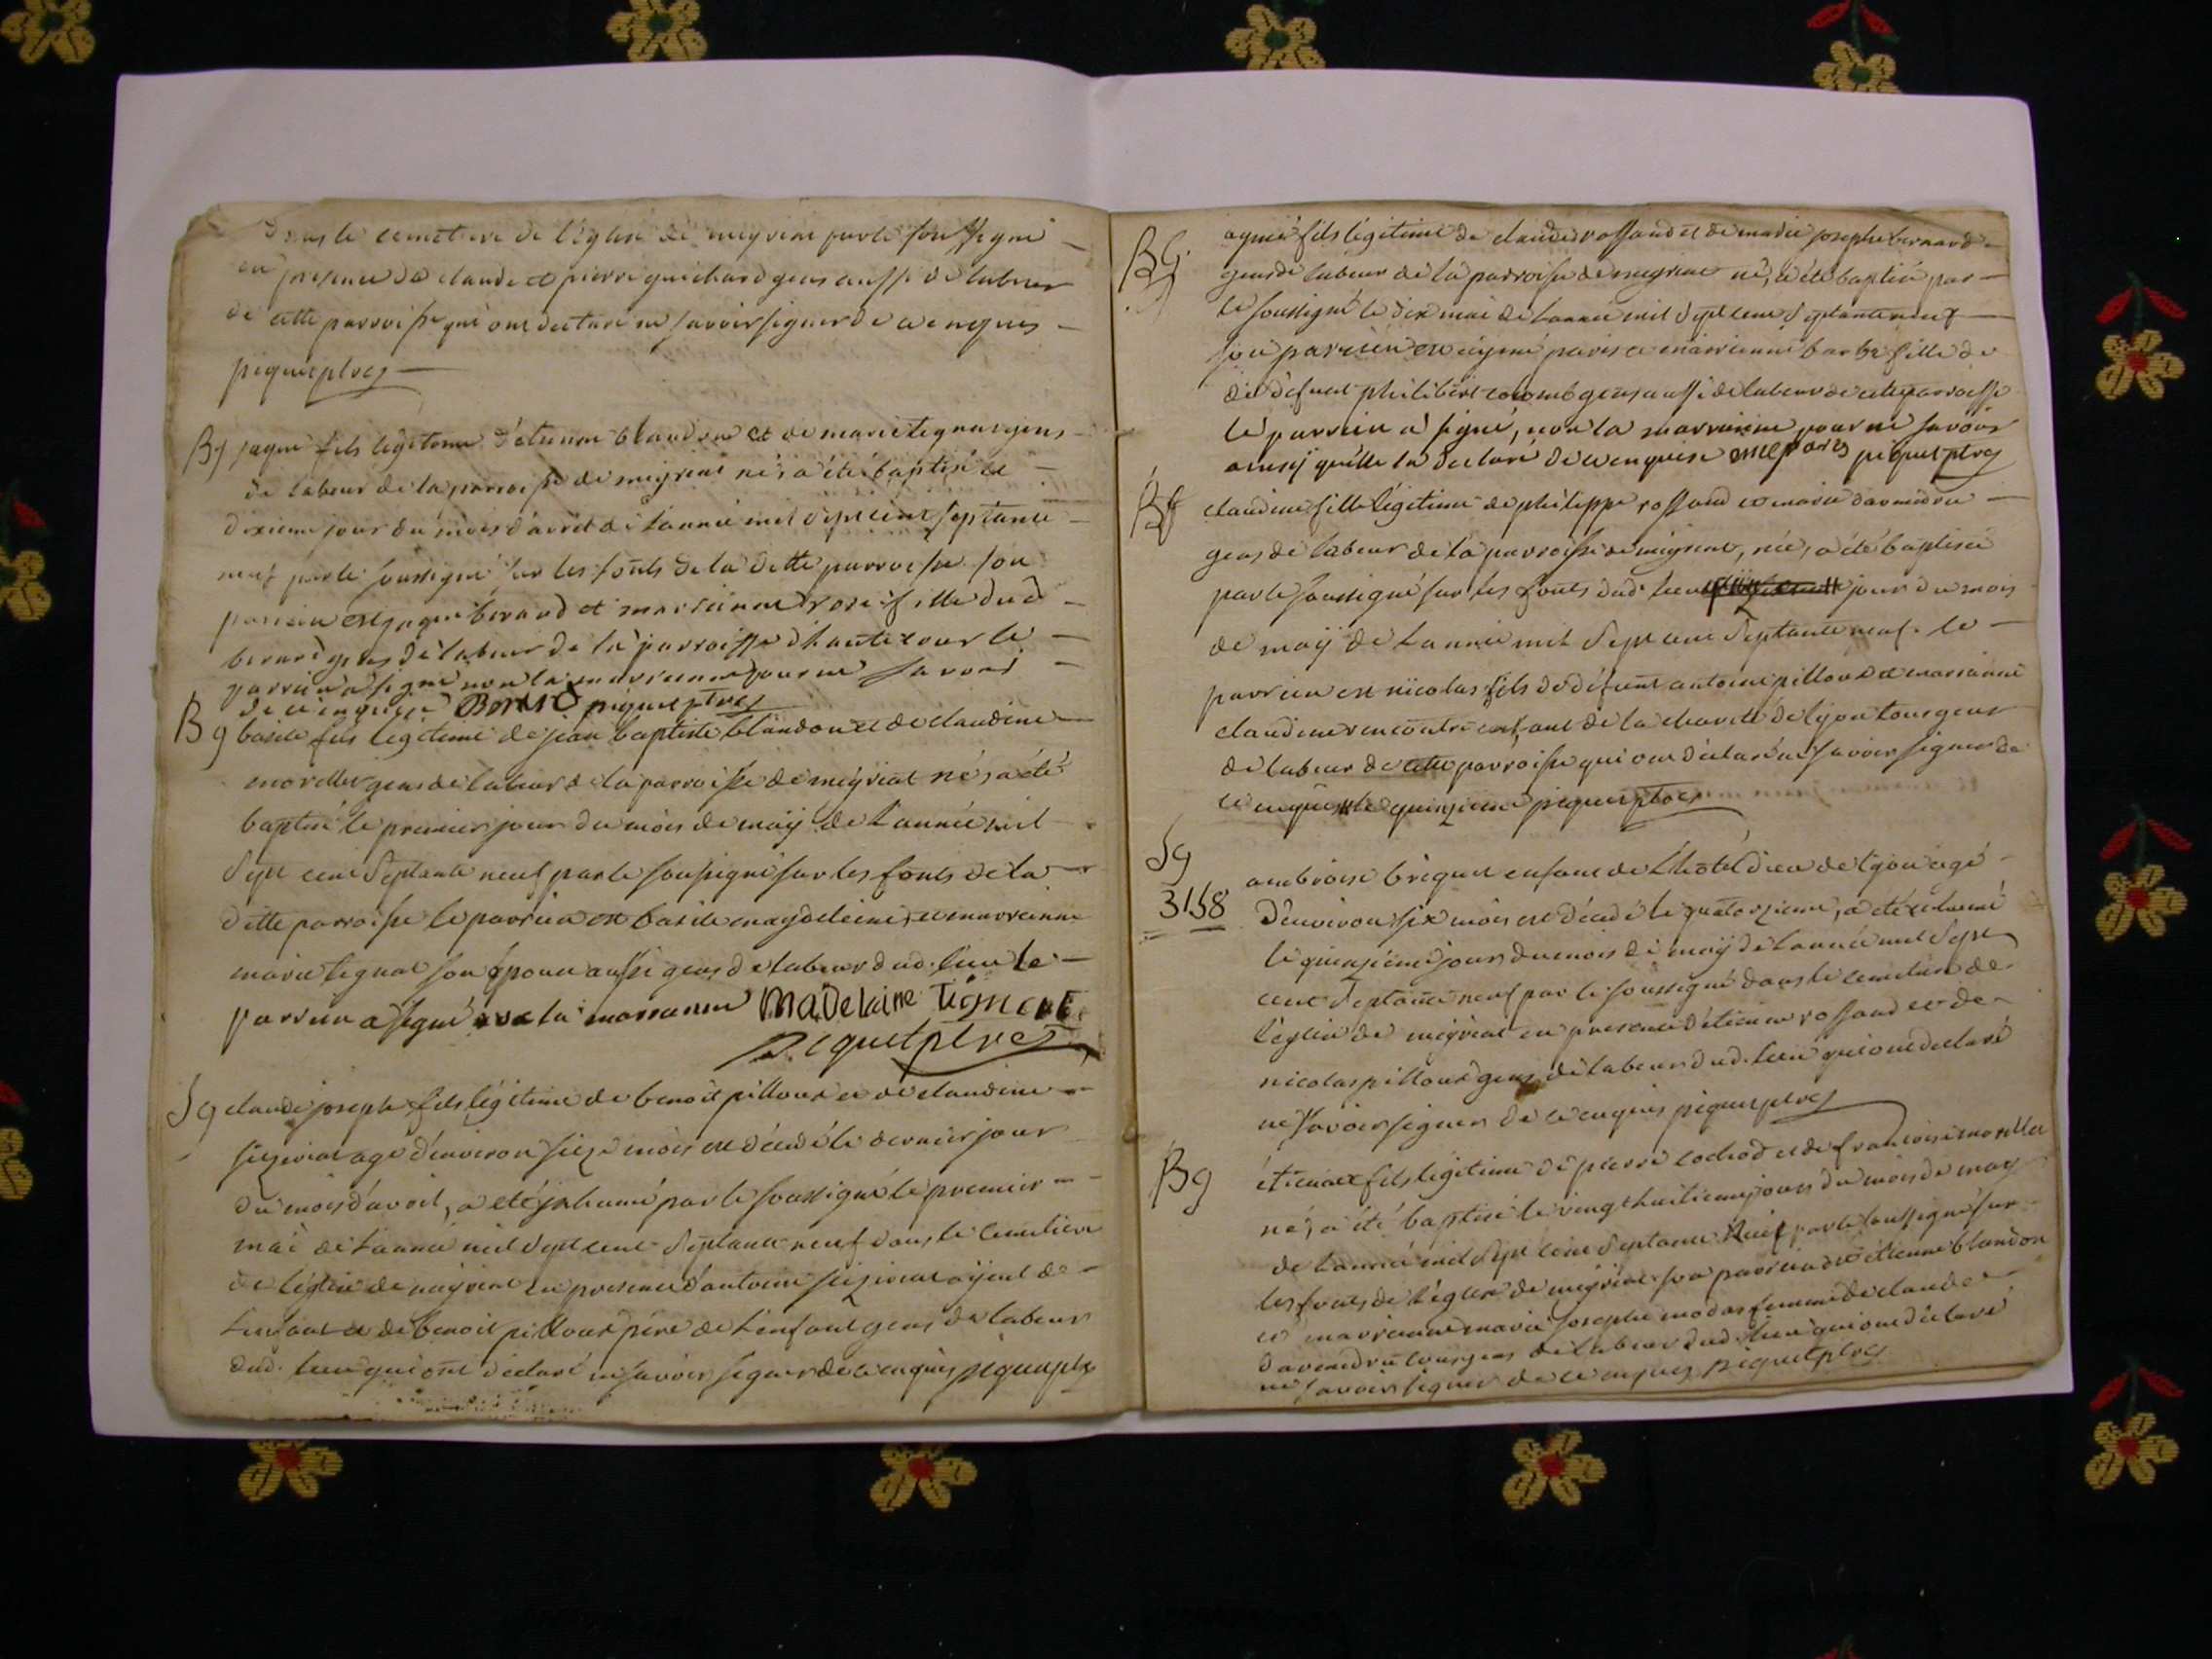 dans le cemetiere de l'églisé de meyriat par le soussigné
en presence de claude et pierre guichard gens aussi de labeur
de cette parroisse qui ont declaré ne savoir signer de ce enquis
piquet ptre
Bg jaque fils légitime d'etienne blandon et de marie tignat gens
de labeur de la parroisse de meyriat né, a été baptisé le
dixieme jour du mois d'avril de l'année mil sept cent septante
neuf par le soussigné sur les fonts de la dette parroisse son
parrein est jaque berard et marrienne rose fille dud
berard gens de labeur de la parroisse d'hautecour le
parrein a signé non la marrienne pour ne savoir
de ce enquise Berard piquet ptre
Bg basile fils légitime de jean baptiste blandon et de claudine
morellet gens de labeur de la parroisse de meyriat né, a été
baptisé le premier jour du mois de maÿ de l'année mil
sept cent septante neuf par le soussigné sur les fonts de la
dette parroisse le parrien est basile magdeleine, et marrienne
marie tignat son épouse aussi gens de labeur dud. lieu le
parrien a signé la marrienne Madelaine Tignat
piquet ptre
Sg claude joseph fils légitime de benoit pilloux et de claudine
agé d'environ seize mois est décédé le dernier jour
du mois d'avril, a été inhumé par le soussigné le premier
mai de l'année mil sept cent septante neuf dans le cemetiere
de l'église de meyriat en presence d'antoine ayeul de
l'enfant et de benoit pilloux père de l'enfant gens de labeur
dud. lieu qui ont déclaré ne savoir signer de ce enquis piquet ptre
BG. aymé fils légitime de claude rossand et de marie josephe bernard
gens de labeur de la parroisse de meyriat né, a été baptisé par
le soussigné le dix mai de l'année mil sept cent septante neuf
son parrein est aymé paris et marrienne barbe fille de
de défunt philibert colomb gens aussi de labeur de cette parroisse
le parrein a signé, non la marrienne pour ne savoir
ainsÿ qu'elle l'a declaré de ce enquise paris piquet ptre
Bg claudine fille légitime de philippe rossand et marie
gens de labeur de la parroisse de meyriat, née, a été baptisée
par le soussigné sur les fonts dud. lieu jour du mois
de maÿ de l'année mil sept cent septante neuf. le
parrien est nicolas fils de défunt antoine pilloux et marrienne
claudine rencontre enfant de la charité de lyon tous gens
de labeur de cette parroisse qui ont déclaré ne savoir signer de
ce enquis le quinzieme piquet ptre
Sg ambroise briquet enfant de l'hotel dieu de lyon agé
3158 d'environ six mois est décédé le quatorzieme, a été inhumé
le quinzieme jour du mois de maÿ de l'année mil sept
cent septante neuf par le soussigné dans le cemetiere de
l'église de meyriat en presence d'étienne rossand et de
nicolas pilloux gens de labeur dud. lieu qui ont declaré
ne savoir signer de ce enquis piquet ptre
Bg étienne fils légitime de pierre cochod et de francoise morellet
né, a été baptisé le vingt huitieme jour du mois de may
de l'année mil sept cent septante neuf par le soussigné sur
les fonts de l'église de meyriat son parrien est étienne blandon
et marrienne marie josephe femme de claude
tous gens de labeur dud. lieu qui ont déclaré
ne savoir signer de ce enquis piquet ptre